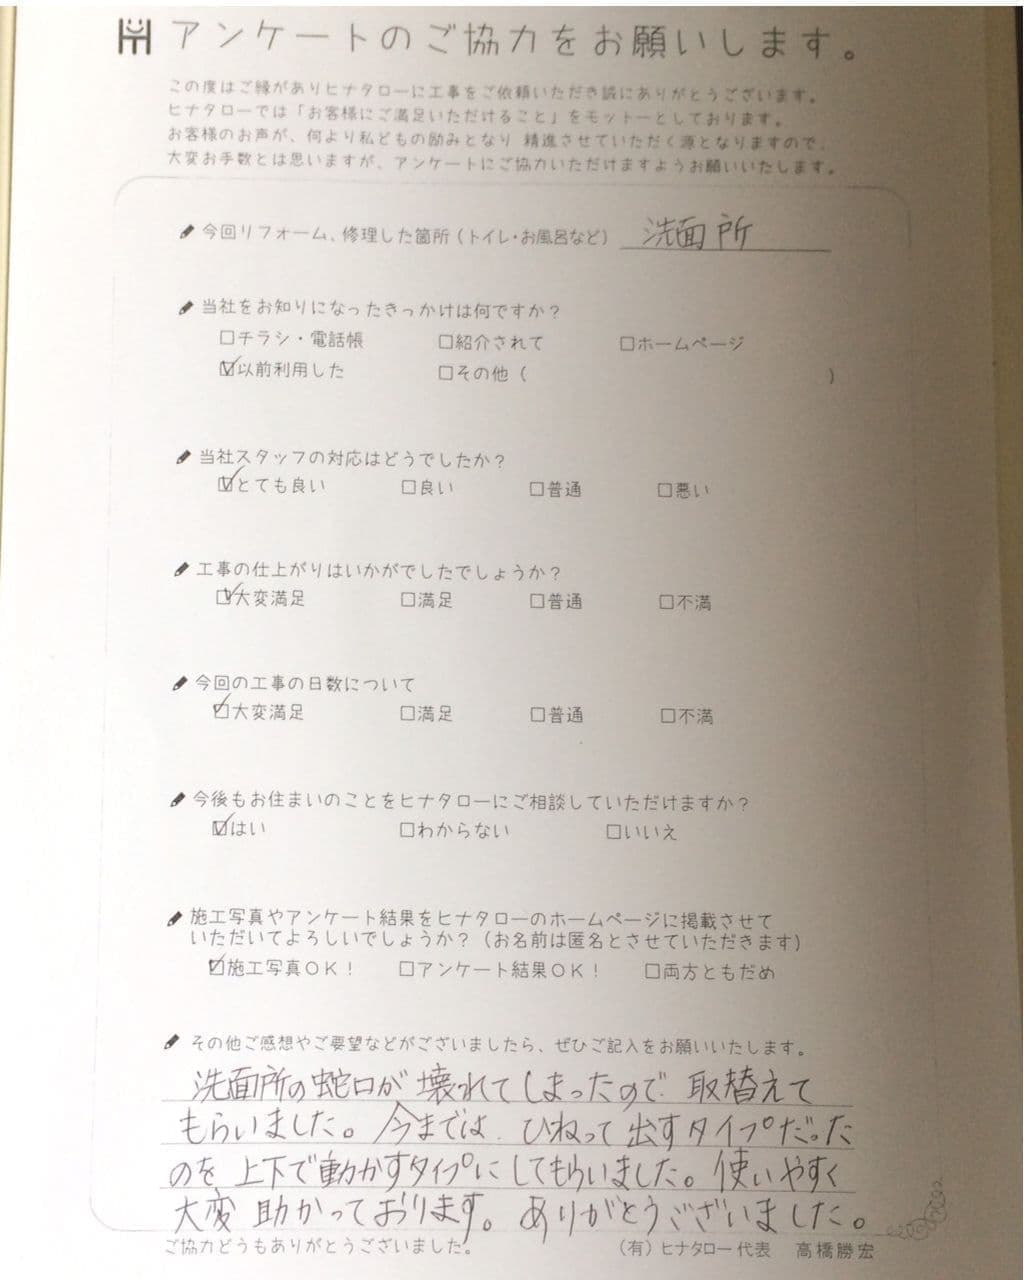 アンケートのご協力をお願いします。
この度はご縁がありヒナタローに工事をご依頼いただき誠にありがとうございます。
ヒナタローでは「お客様にご満足いただけること」をモットーとしております。
お客様のお声が、何より私どもの励みとなり 精進させていただく源となりますので、
大変お手数とは思いますが、アンケートにご協力いただけますようお願いいたします。
今回リフォーム、修理した箇所（トイレ・お風呂など） 洗面所
当社をお知りになったきっかけは何ですか？
□チラシ・電話帳 □紹介されて □ホームページ
☑以前利用した □その他（ ）
当社スタッフの対応はどうでしたか？
☑とても良い □良い □普通 □悪い
工事の仕上がりはいかがでしたでしょうか？
☑大変満足 □満足 □普通 □不満
今回の工事の日数について
☑大変満足 □満足 □普通 □不満
今後もお住まいのことをヒナタローにご相談していただけますか？
☑はい □わからない □いいえ
施工写真やアンケート結果をヒナタローのホームページに掲載させて
いただいてよろしいでしょうか？（お名前は匿名とさせていただきます）
☑施工写真ＯＫ！ □アンケート結果ＯＫ！ □両方ともだめ
その他ご感想やご要望などがございましたら、ぜひご記入をお願いいたします。
洗面所の蛇口が壊れてしまったので 取替えて
もらいました。今までは、ひねって出すタイプだった
のを 上下で動かすタイプにしてもらいました。使いやすく
大変 助かっております。ありがとうございました。
ご協力どうもありがとうございました。 （有）ヒナタロー 代表 高橋勝宏